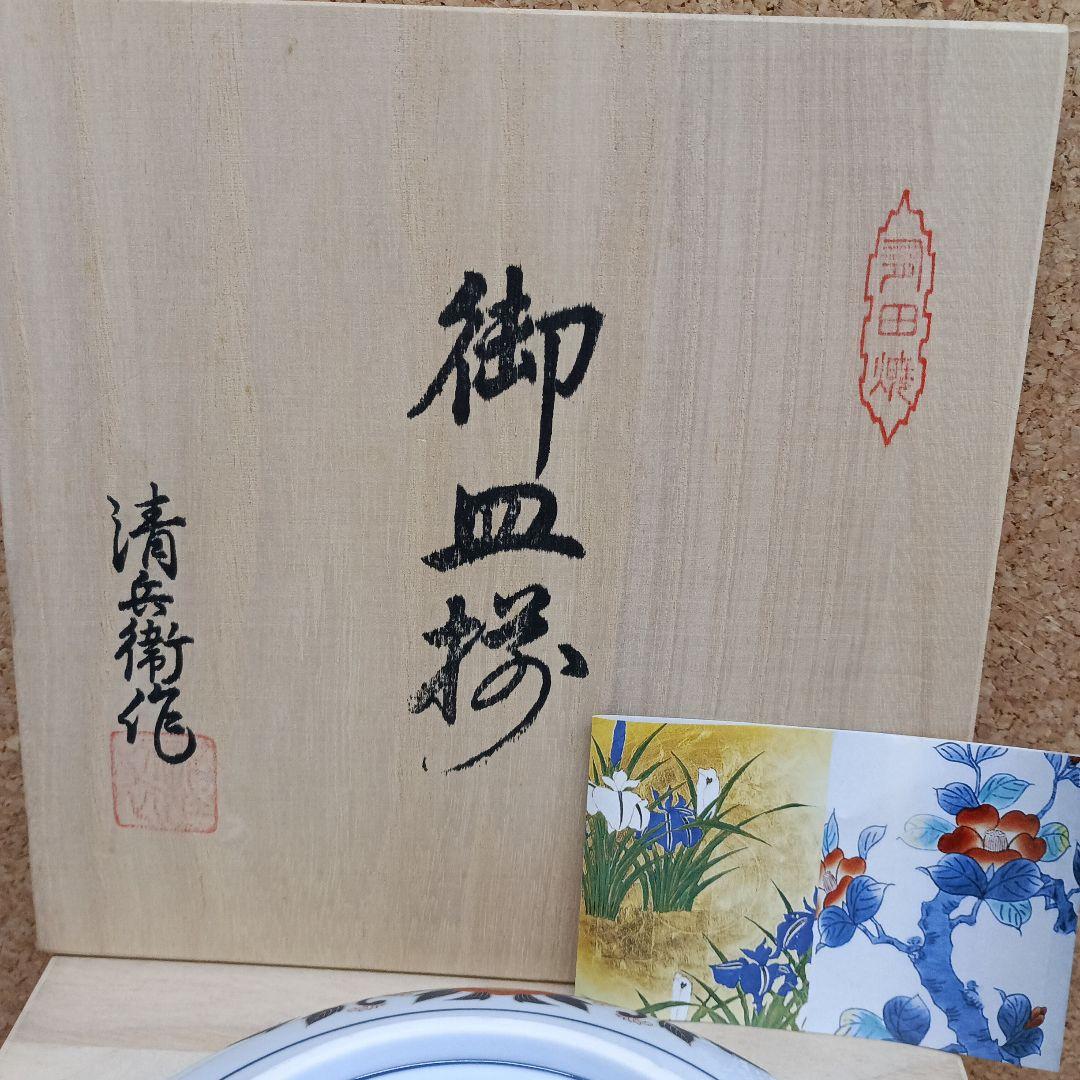 有田焼
御皿揃
清兵衛作